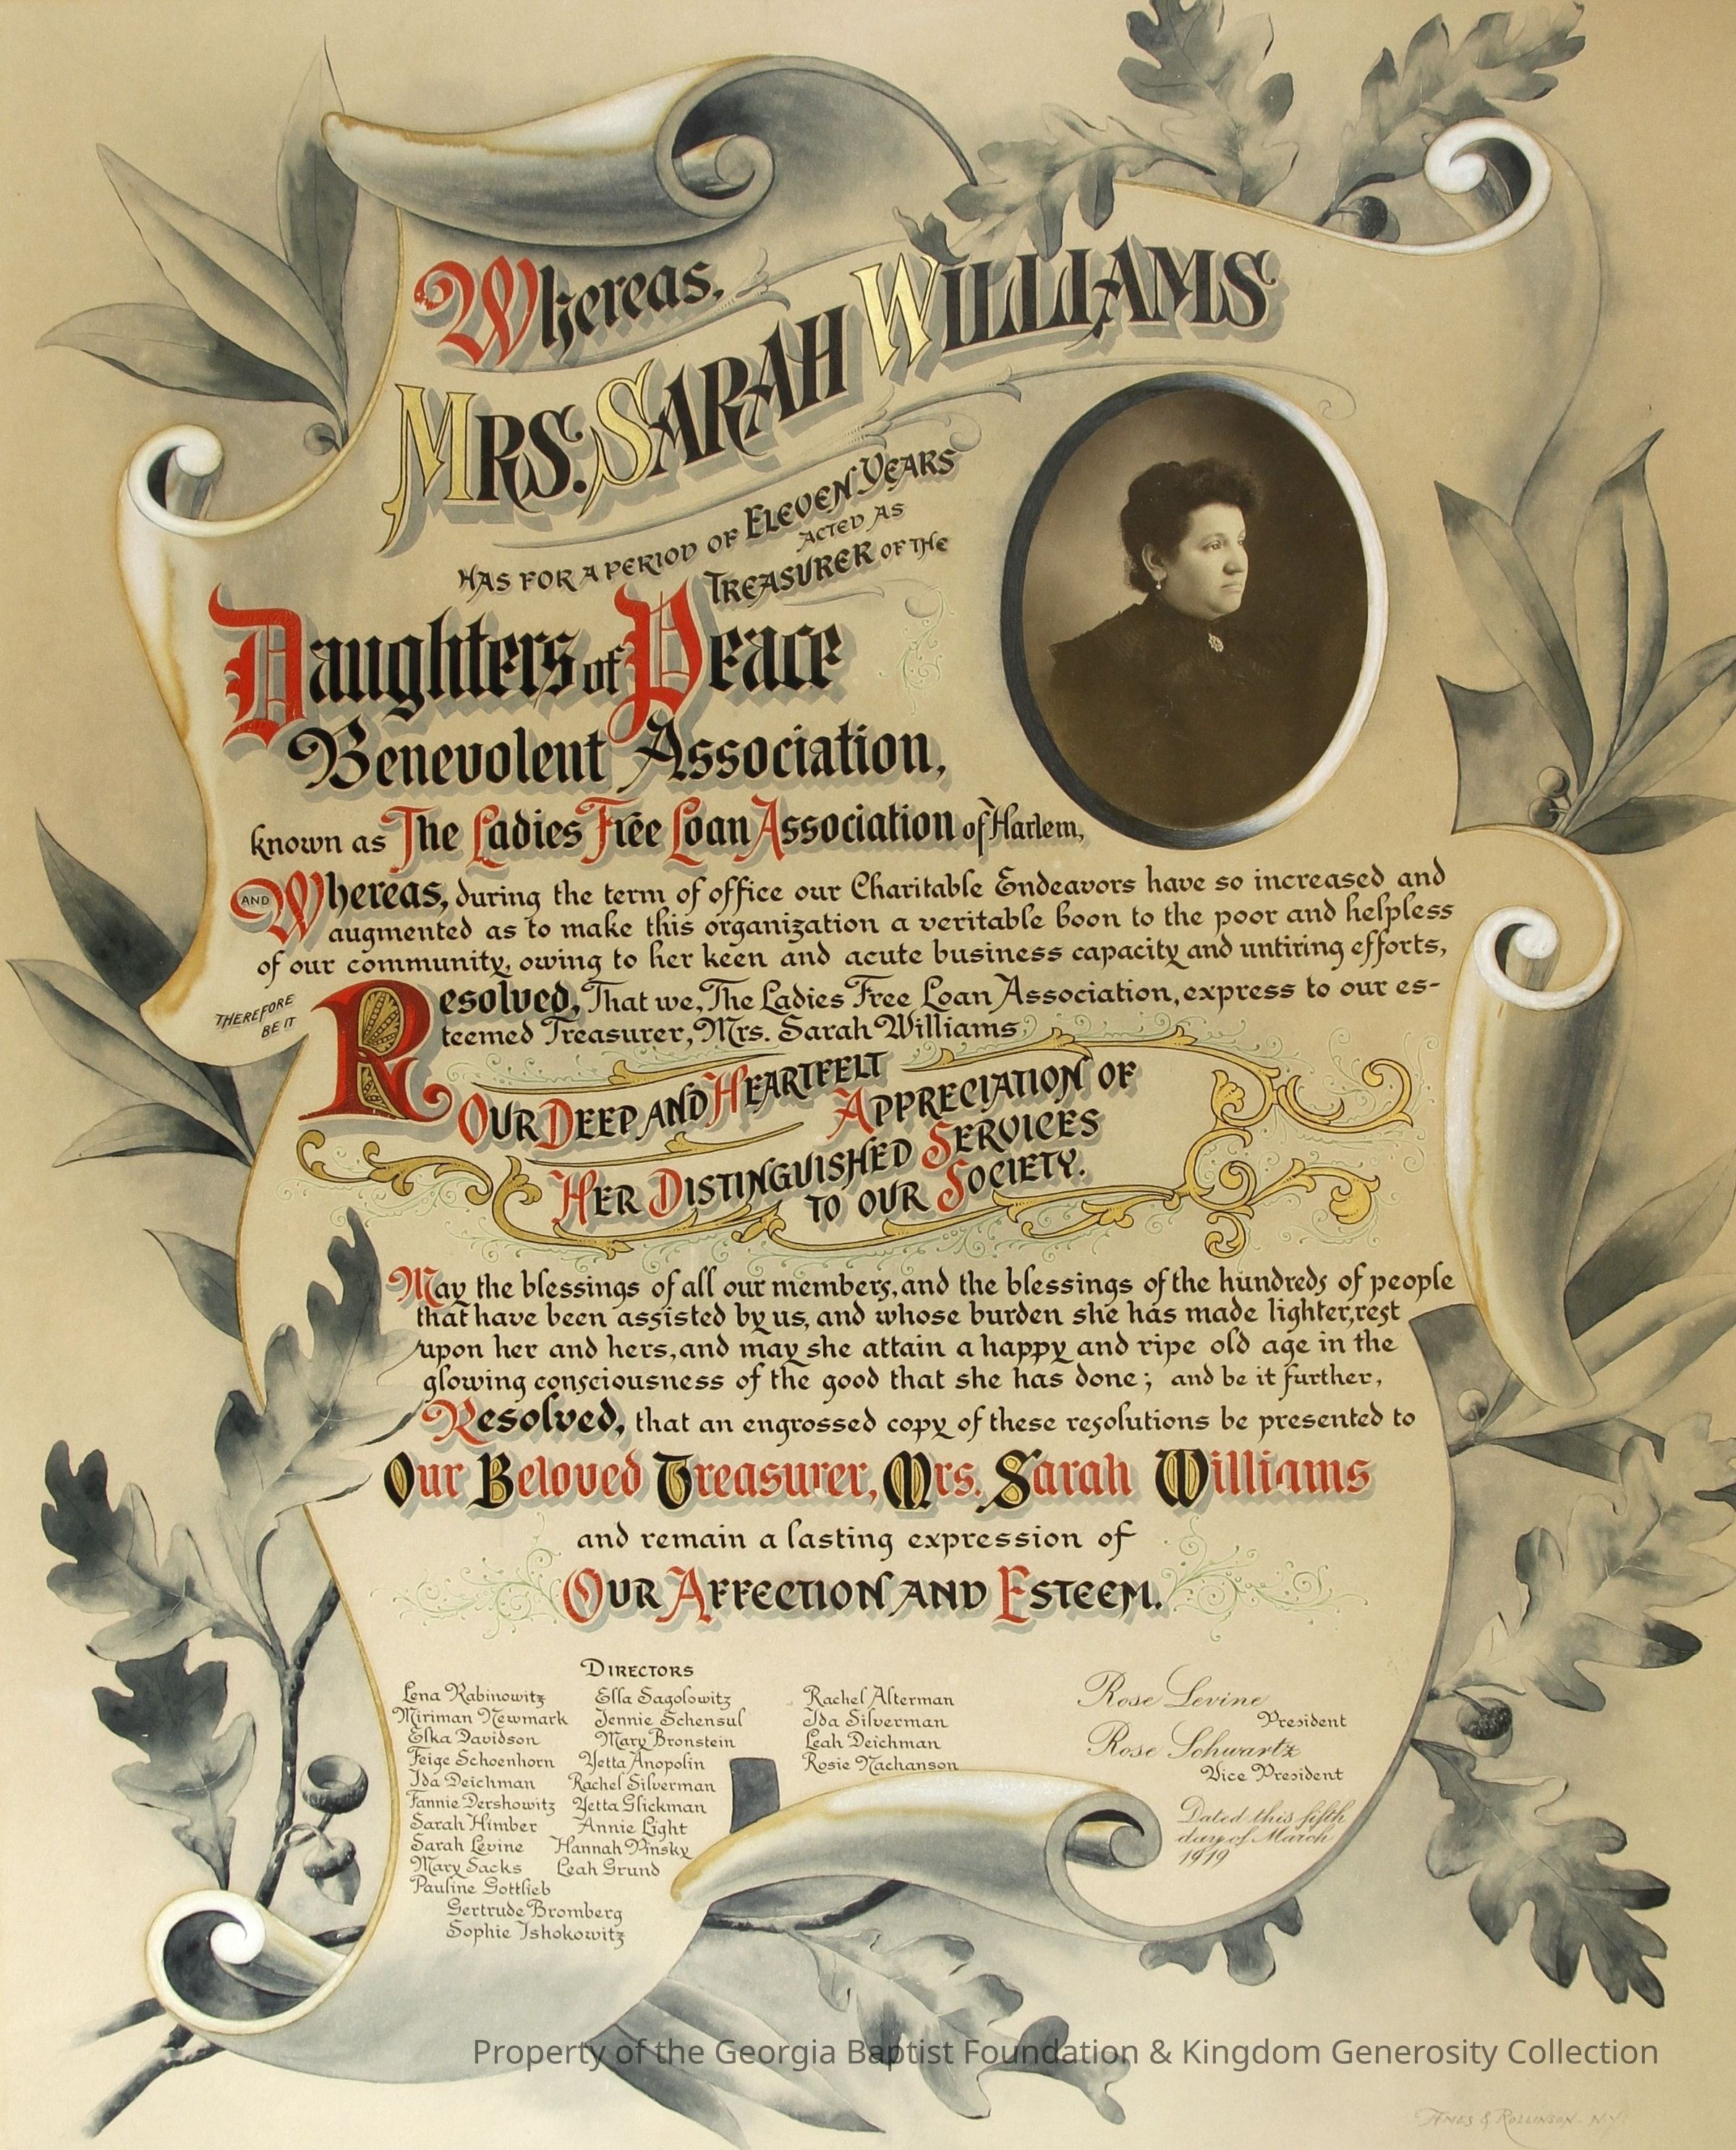 Whereas,
MRS. SARAH WILLIAMS
HAS FOR A PERIOD OF ELEVEN YEARS
ACTED AS
TREASURER OF THE
Daughters of Peace
Benevolent Association,
known as The Ladies Free Loan Association of Harlem,
AND Whereas, during the term of office our Charitable Endeavors have so increased and
augmented as to make this organization a veritable boon to the poor and helpless
of our community, owing to her keen and acute business capacity and untiring efforts,
THEREFORE
BE IT
Resolved, That we, The Ladies Free Loan Association, express to our es-
teemed Treasurer, Mrs. Sarah Williams,
OUR DEEP AND HEARTFELT
APPRECIATION OF
HER DISTINGUISHED SERVICES
TO OUR SOCIETY.
May the blessings of all our members, and the blessings of the hundreds of people
that have been assisted by us, and whose burden she has made lighter, rest
upon her and hers, and may she attain a happy and ripe old age in the
glowing consciousness of the good that she has done; and be it further,
Resolved, that an engrossed copy of these resolutions be presented to
Our Beloved Treasurer, Mrs. Sarah Williams
and remain a lasting expression of
OUR AFFECTION AND ESTEEM.
DIRECTORS
Lena Rabinowitz
Miriman Newmark
Elka Davidson
Feige Schoenhorn
Ida Deichman
Fannie Dershowitz
Sarah Himber
Sarah Levine
Mary Sacks
Pauline Gottlieb
Gertrude Bromberg
Sophie Ishokowitz
Ella Sagolowitz
Jennie Schensul
Mary Bronstein
Yetta Anopolin
Rachel Silverman
Yetta Glickman
Annie Light
Hannah Pinsky
Leah Grund
Rachel Alterman
Ida Silverman
Leah Deichman
Rosie Nachanson
Rose Levine
President
Rose Schwartz
Vice President
Dated this fifth
day of March
1919
Property of the Georgia Baptist Foundation & Kingdom Generosity Collection
AMES & ROLLINSON - N.Y.